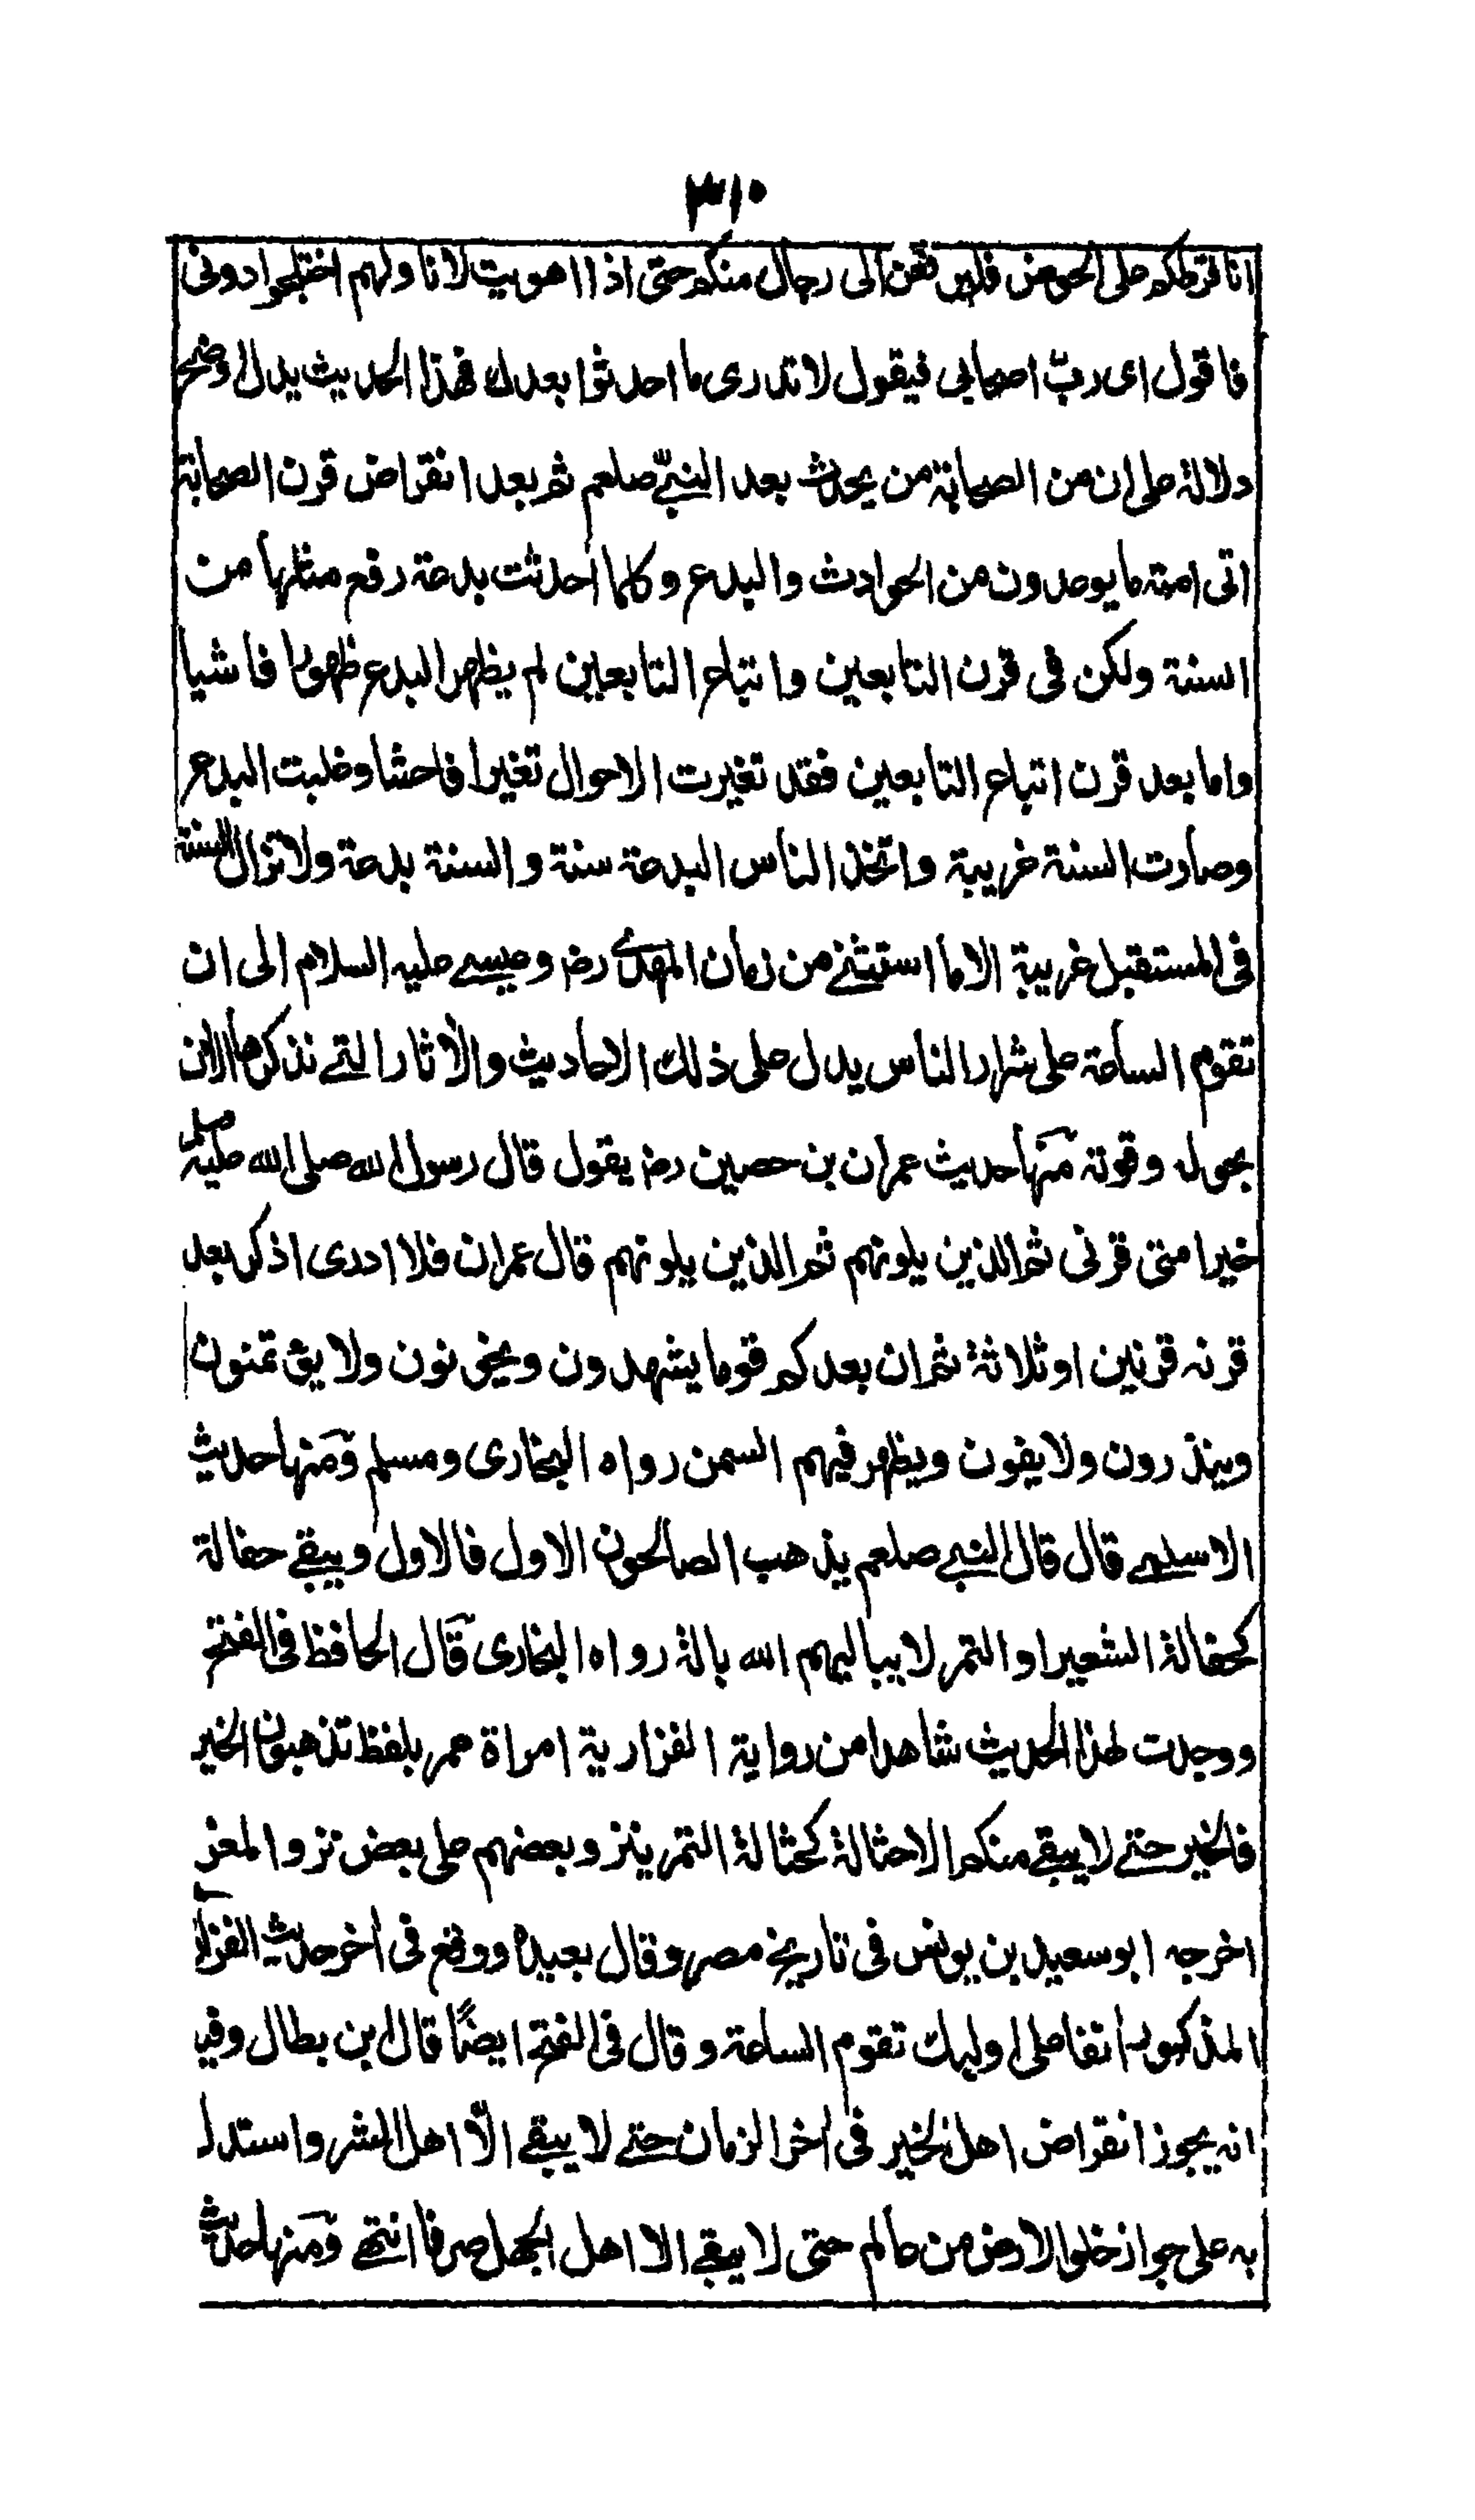 ٣١٠
انا فرطكم على الحوض فليرفعن الى رجال منكم حتى اذا اهويت لاناولهم اختلجوا دونى
فاقول اى ربّ اصحابى فيقول لا تدرى ما احدثوا بعدك فهذا الحديث يدل اوضح
دلالة على ان من الصحابة من يحدث بعد النبىّ صلعم ثم بعد انقراض قرن الصحابة
اتى امته ما يوعدون من الحوادث والبدع وكلما أحدثت بدعة رفع مثلها من
السنة ولكن فى قرن التابعين واتباع التابعين لم يظهر البدع ظهورا فاشيا
واما بعد قرن اتباع التابعين فقد تغيرت الاحوال تغيرا فاحشا وغلبت البدع
وصارت السنة غريبة واتخذ الناس البدعة سنة والسنة بدعة ولا تزال السنة
فى المستقبل غريبة الا ما استثنى من زمان المهدى رض وعيسے عليه السلام الى ان
تقوم الساعة على شرار الناس يدل على ذلك الاحاديث والآثار التے نذكرها الان
بحوله وقوته منها حديث عمران بن حصين رض يقول قال رسول الله صلى الله عليه وسلم
خير امتى قرنى ثم الذين يلونهم ثم الذين يلونهم قال عمران فلا ادرى اذكر بعد
قرنه قرنين او ثلاثة ثم ان بعدكم قوما يشهدون ويخونون ولا يؤتمنون
وينذرون ولا يفون ويظهر فيهم السمن رواه البخارى ومسلم ومنها حديث
الاسلمے قال قال النبے صلعم يذهب الصالحون الاول فالاول ويبقے حفالة
كحفالة الشعير او التمر لا يباليهم الله بالة رواه البخارى قال الحافظ فى الفتح
ووجدت لهذا الحديث شاهدا من رواية الفزارية امراة عمر بلفظ تذهبون الخير
فالخير حتے لا يبقے منكم الا حثالة كحثالة التمر ينزو بعضهم على بعض نزو المعز
اخرجه ابو سعيد بن يونس فى تاريخ مصر وقال بعيده ووقع فى آخر حديث الفزارية
المذكور أنفا على اوليك تقوم الساعة وقال فى الفتح ايضًا قال ابن بطال وفيه
انه يجوز انقراض اهل الخير فى آخر الزمان حتے لا يبقے الّا اهل الشر واستدل
به على جواز خلو الارض من عالم حتى لا يبقے الا اهل الجهل صرفا انتهے ومنها حديث